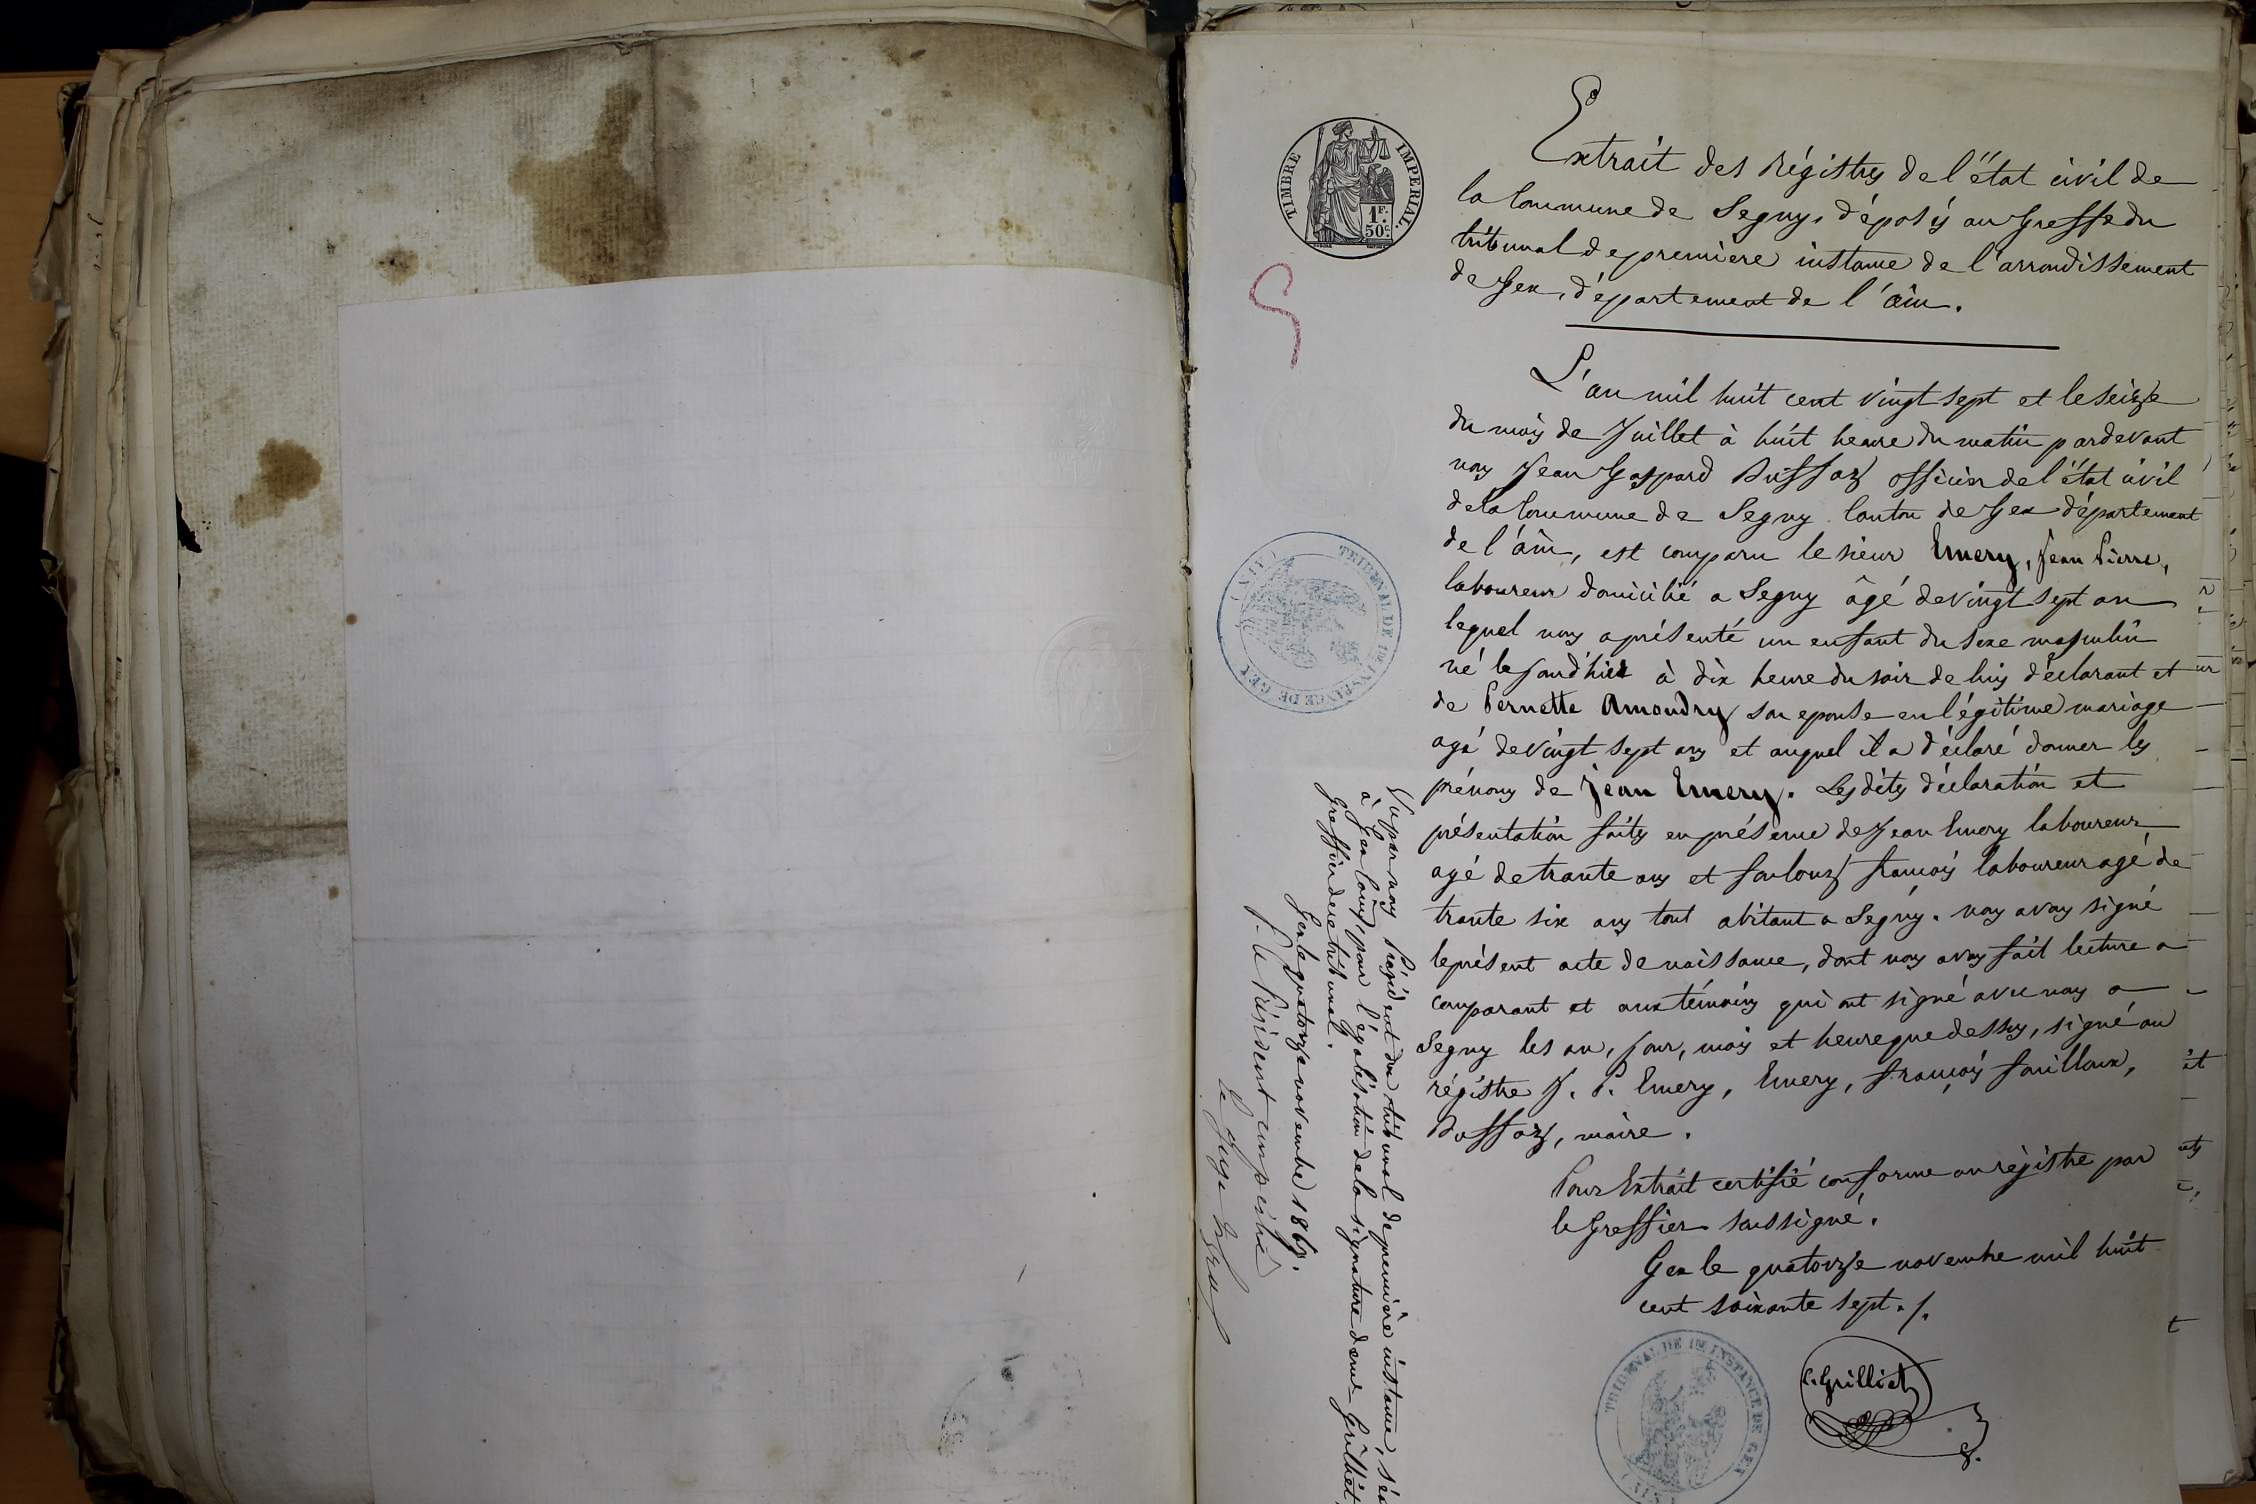 TIMBRE IMPERIAL.
1F.
50c.
Extrait des Régistres de l'état civil de
la Commune de Segny, déposés au Greffe du
tribunal de première instance de l'arrondissement
de Gex, département de l'ain.
L'an mil huit cent vingt sept et le seize
du mois de Juillet à huit heure du matin pardevant
nous Jean Gaspard Duffoz officier de l'état civil
de la Commune de Segny Canton de Gex département
de l'ain, est comparu le sieur Emery, Jean Pierre,
laboureur domicilié a Segny âgé de vingt sept ans
lequel nous a présenté un enfant du sexe masculin
né le jourd'hier à dix heure du soir de luy déclarant et
de Pernette Amoudry son epouse en légitime mariage
agé de vingt sept ans et auquel il a déclaré donner les
prénoms de Jean Emery. Les dites déclaration et
présentation faites en présence de Jean Emery laboureur
agé de trante ans et François laboureur agé de
trante six ans tout abitant a Segny. nous avons signé
le présent acte de naissance, dont nous avons fait lecture a
comparant et aux témoins qui ont signé avec nous a
Segny les an, jour, mois et heure que dessus, signé au
régistre J. P. Emery, Emery, françois fouilloux,
Duffoz, maire.
Pour Extrait certifié conforme au régistre par
le Greffier soussigné.
Gex le quatorze novembre mil huit
cent soixante sept./.
C. Grilliet
TRIBUNAL DE 1re INSTANCE DE GEX
(AIN)
Vu par nous Président du tribunal de première instance, séant
à Gex (ain), pour légalisation de la signature de me Grilliet,
Greffier de ce tribunal.
Gex le quatorze novembre 1867.
P. le Président empêché
Le Juge
TRIBUNAL DE 1re INSTANCE DE GEX
(AIN)